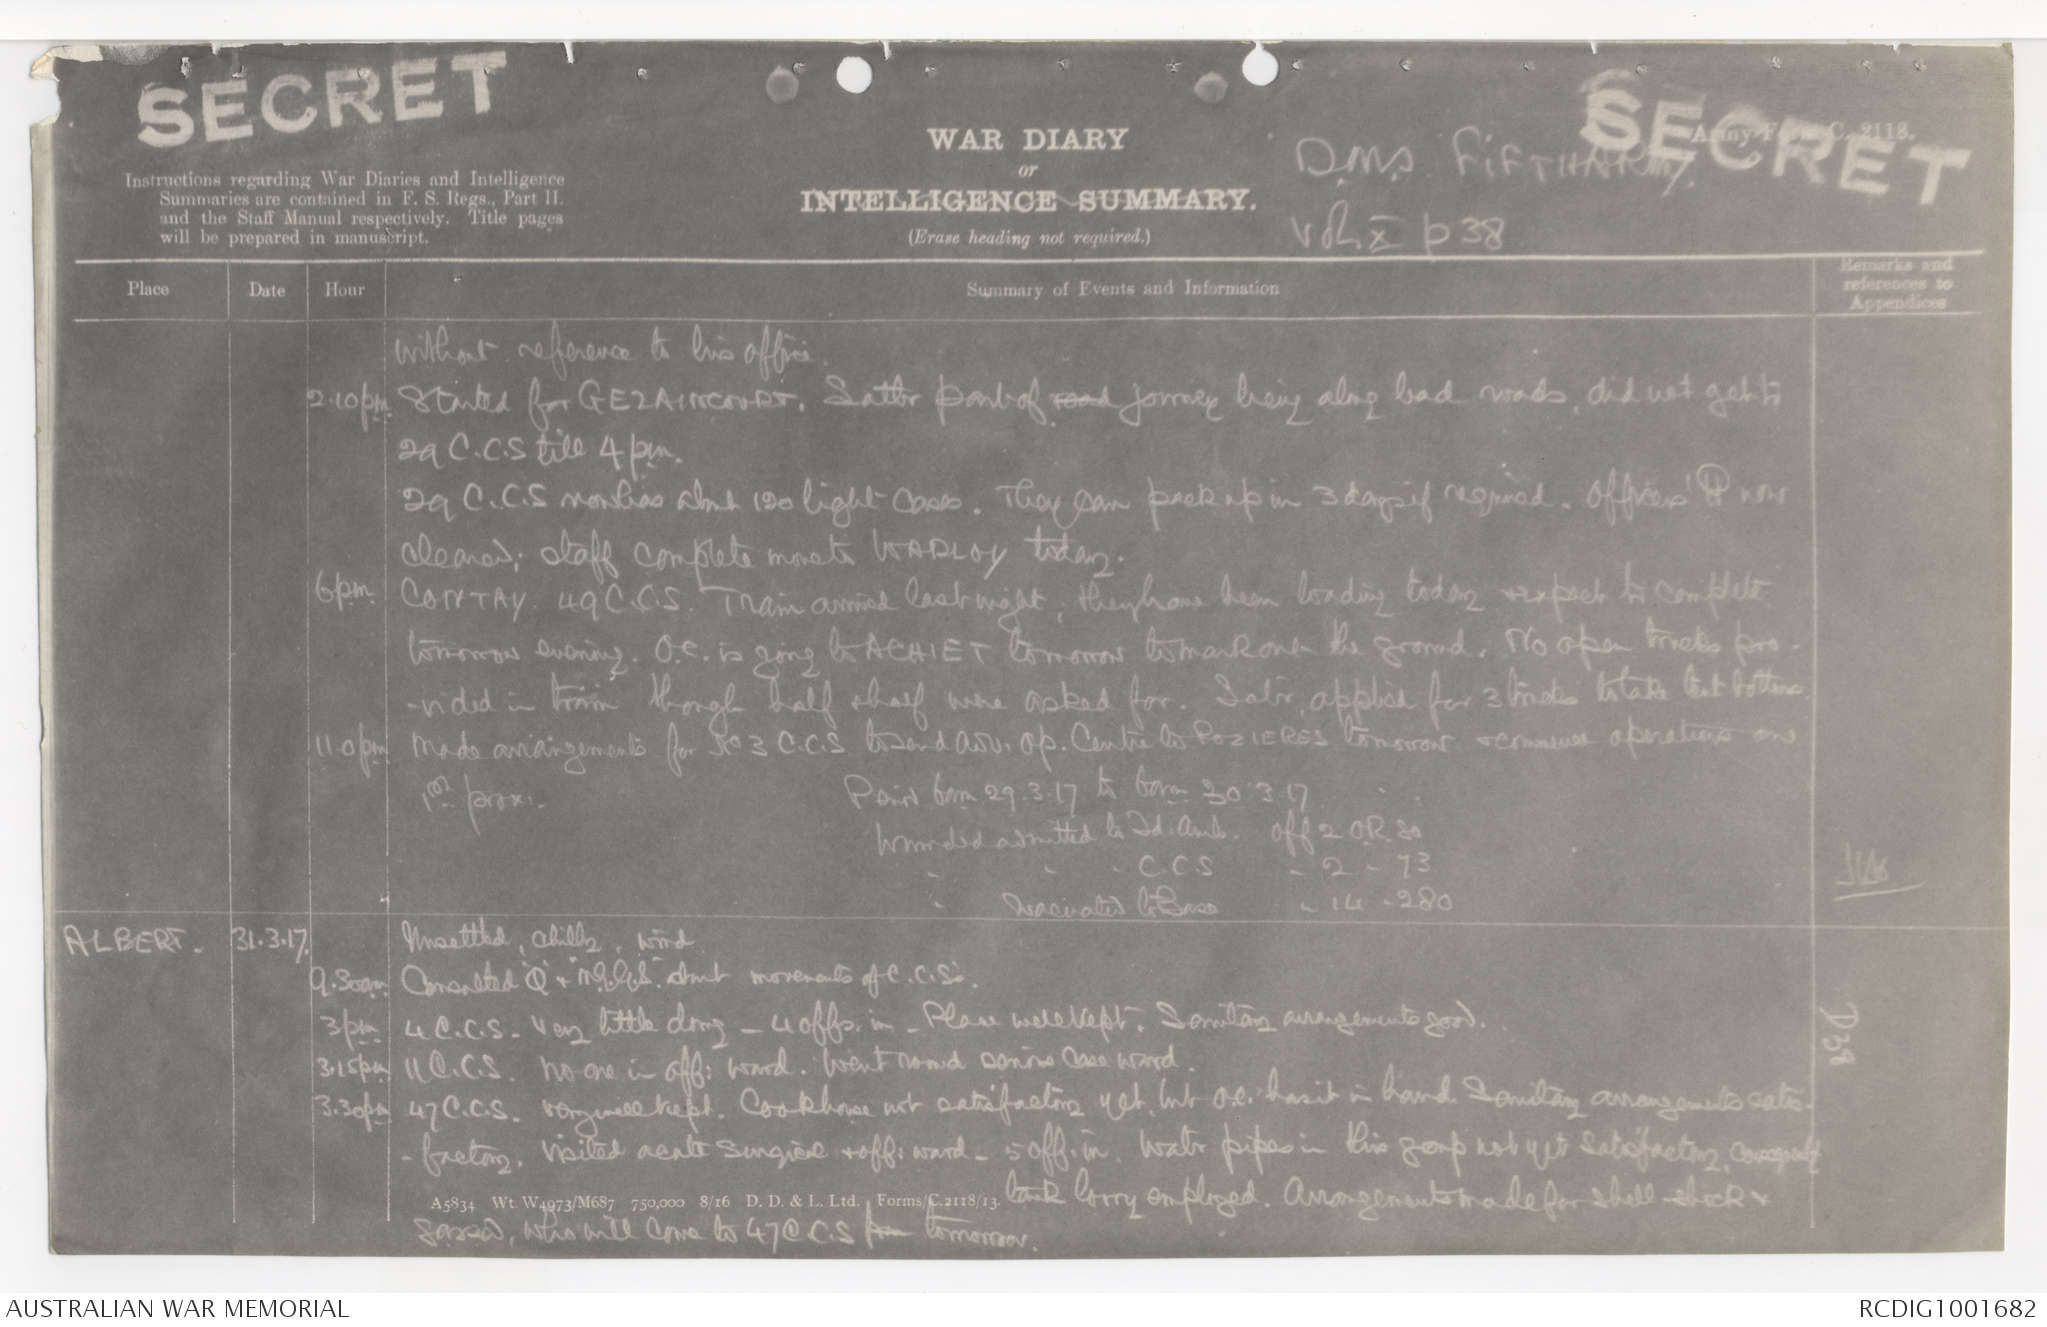 SECRET
SECRET
Army Form C. 2118.
WAR DIARY
or
INTELLIGENCE SUMMARY.
(Erase heading not required.)
D.M.S. FIFTH ARMY.
Vol. X p 38
Instructions regarding War Diaries and Intelligence
Summaries are contained in F. S. Regs., Part II.
and the Staff Manual respectively. Title pages
will be prepared in manuscript.
Place
Date
Hour
Summary of Events and Information
Remarks and
references to
Appendices
without reference to his office.
2.10pm Started for GEZAINCOURT. Latter part of road journey being along bad roads, did not get to
29 C.C.S till 4 pm.
29 C.C.S now has about 120 light cases. They can pack up in 3 days if required. Officers' H now
cleared; staff complete move to WARLOY today.
6pm CONTAY. 49 C.C.S. Train arrived last night, they have been loading today & expect to complete
tomorrow evening. O.C. is going to ACHIET tomorrow to mark out the ground. No open trucks pro-
-vided in train though half & half were asked for. Later, applied for 3 trucks to take tent bottoms.
11.0pm Made arrangements for No 3 C.C.S to send adv. op. Centre to POZIERES tomorrow & commence operations on
1st prox:.
29.3.17 to 30.3.17
Wounded admitted to Fd. Amb. off 2 OR 30
" " " C.C.S " 2 - 73
" Evacuated to Base " 14 - 280
ALBERT. 31.3.17. Unsettled, chilly, wind
9.30am Consulted "Q" & about movements of C.C.S's.
3pm 4 C.C.S. Very little doing - 4 offs. in - Place well kept. Sanitary arrangements good.
3.15pm 11 C.C.S. No one in off: ward. Went round serious case ward.
3.30pm 47 C.C.S. very well kept. Cookhouse not satisfactory yet, but O.C. has it in hand. Sanitary arrangements satis-
-factory. Visited acute surgical & off: ward - 5 off. in. Water pipes in this group not yet satisfactory, consequently
tank lorry employed. Arrangements made for shell-shock &
gassed, who will come to 47 C.C.S from tomorrow.
P38
A5834 Wt. W4973/M687 750,000 8/16 D. D. & L. Ltd. Forms/C.2118/13.
AUSTRALIAN WAR MEMORIAL
RCDIG1001682